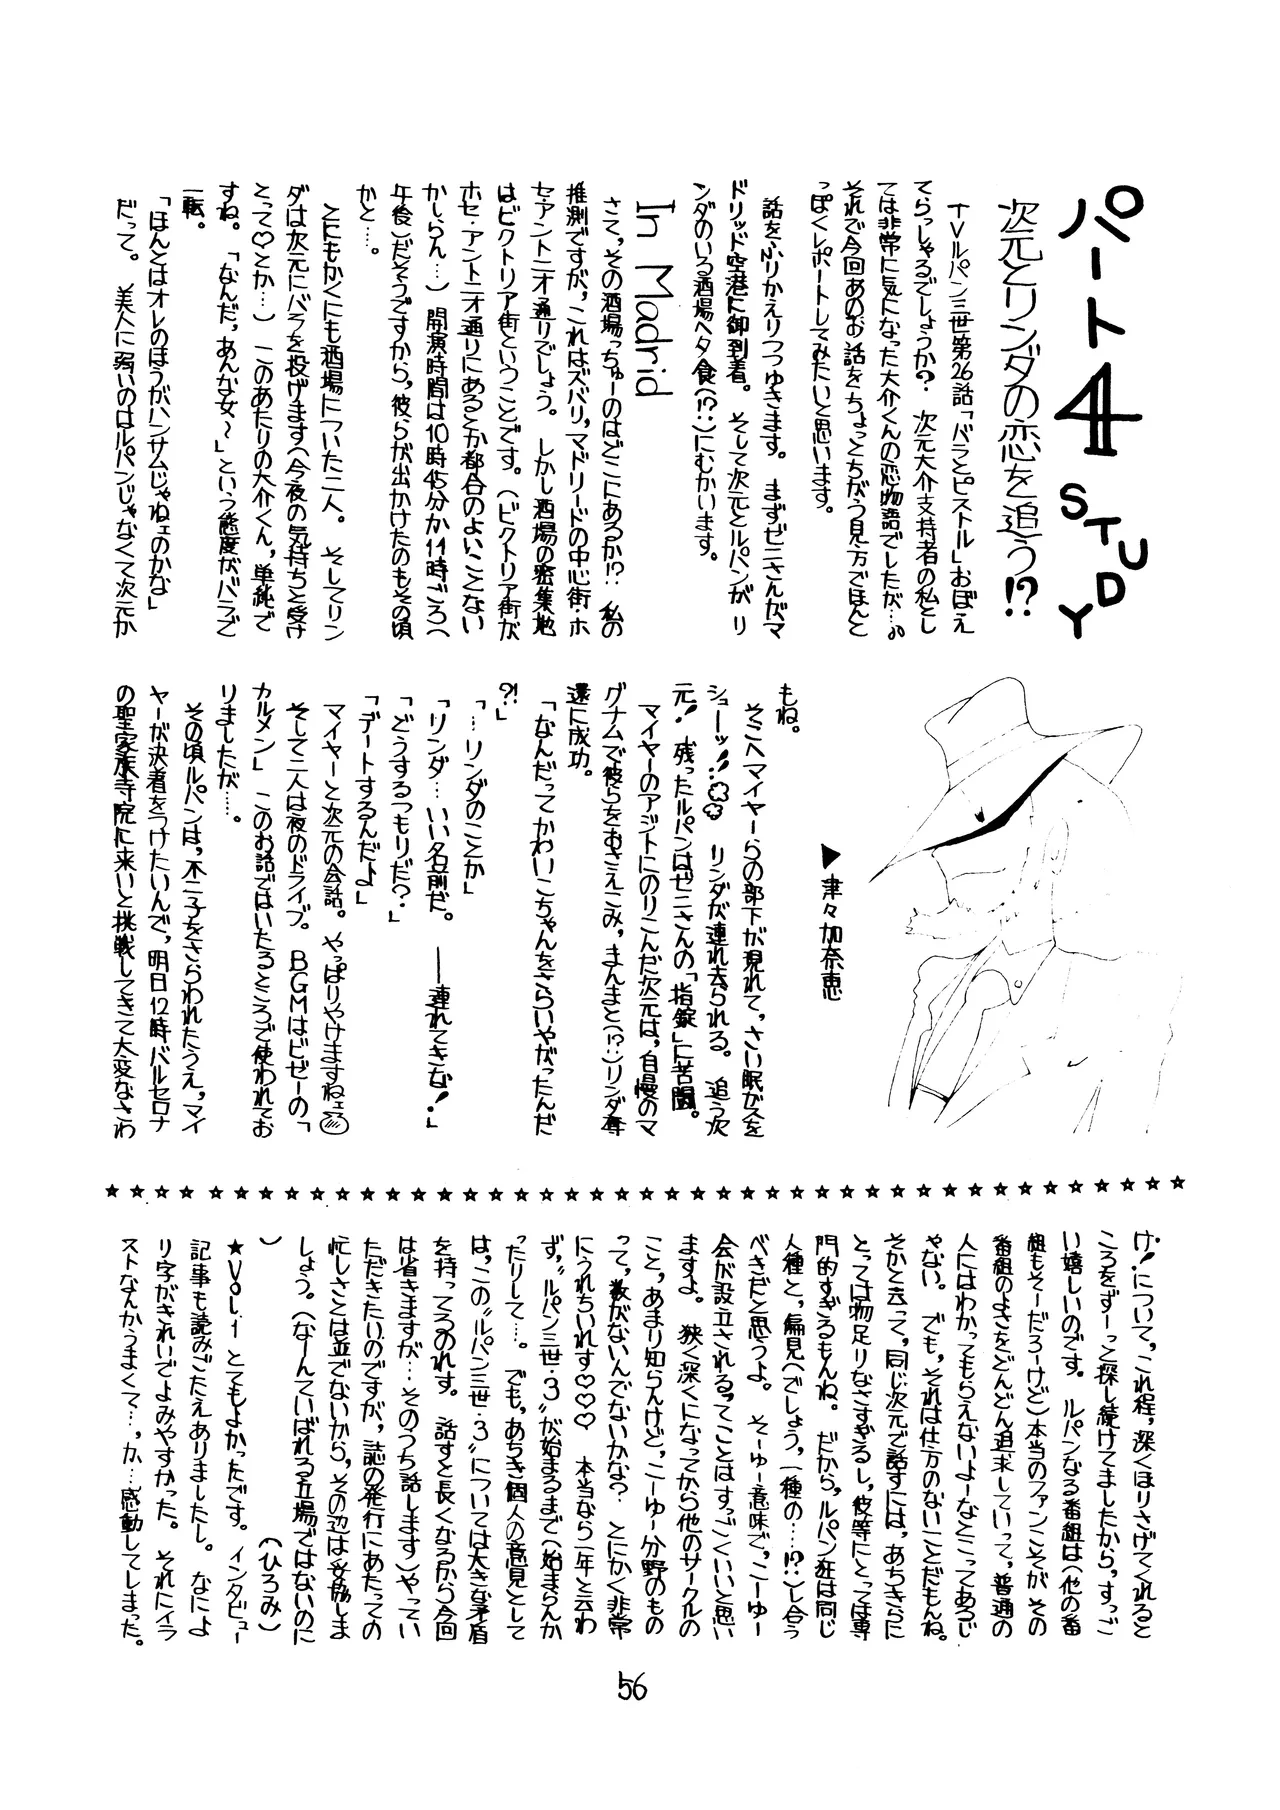 パート4 STUDY
次元とリンダの恋を追う!?
TVルパン三世第26話「バラとピストル」おぼえ
てらっしゃるでしょうか? 次元大介支持者の私とし
ては非常に気になった大介くんの恋物語でしたが…♪
それで今回あのお話をちょっとちがう見方でほんと
っぽくレポートしてみたいと思います。
話をふりかえりつつゆきます。まずゼニさんがマ
ドリッド空港に御到着。そして次元とルパンが リ
ンダのいる酒場へ夕食(!?)にむかいます。
In Madrid
さて、その酒場っちゅーのはどこにあるか!? 私の
推測ですが、これはズバリ、マドリードの中心街・ホ
セ・アントニオ通りでしょう。しかし酒場の密集地
はビクトリア街ということです。(ビクトリア街が
ホセ・アントニオ通りにあるとか都合のよいことない
かしらん…) 開演時間は10時45分か11時ごろ(
午後)だそうですから、彼らが出かけたのもその頃
かと…。
とにもかくにも酒場についた二人。そしてリン
ダは次元にバラを投げます(今夜の気持ちと受け
とって♡とか…) このあたりの大介くん、単純で
すね。「なんだ、あんな女〜」という態度がバラで
一転。
「ほんとはオレのほうがハンサムじゃねェのかな」
だって。 美人に弱いのはルパンじゃなくて次元か
もね。
そこへマイヤーらの部下が現れて、さい眠ガスを
シューッ!! リンダが連れ去られる。追う次
元! 残ったルパンはゼニさんの「指錠」に苦闘。
マイヤーのアジトにのりこんだ次元は、自慢のマ
グナムで彼らをおさえこみ、まんまと(!?)リンダ奪
還に成功。
「なんだってかわいこちゃんをさらいやがったんだ
?!」
「…リンダのことか」
「リンダ…いい名前だ。──連れてきな!」
「どうするつもりだ?」
「デートするんだよ」
マイヤーと次元の会話。やっぱりやけますねェ
そして二人は夜のドライブ。BGMはビゼーの「
カルメン」このお話ではいたるところで使われてお
りましたが……。
その頃ルパンは、不二子をさらわれたうえ、マイ
ヤーが決着をつけたいんで、明日12時バルセロナ
の聖家族寺院に来いと挑戦してきて大変なさわ
▶津々加奈恵
☆☆☆☆☆☆☆☆☆☆☆☆☆☆☆☆☆☆☆☆☆☆☆☆☆☆☆☆☆☆☆☆☆☆☆☆☆☆☆☆☆☆
け!について、これ程、深くほりさげてくれると
ころをずーっと探し続けてましたから、すっご
い嬉しいのです。ルパンなる番組は(他の番
組もそーだろーけど)本当のファンこそが その
番組のよさをどんどん追求していって、普通の
人にはわかってもらえないよーなとこってあるじ
ゃない。でも、それは仕方のないことだもんね。
そかと云って、同じ次元で話すには、あちきらに
とっては物足りなさすぎるし、彼等にとっては専
門的すぎるもんね。だから、ルパン狂は同じ
人種と、偏見(でしょう、一種の…!?)し合う
べきだと思うよ。そーゆー意味で、こーゆー
会が設立されるってことはすっごくいいと思い
ますよ。狭く深くになってから他のサークルの
こと、あまり知らんけど、こーゆー分野のもの
って、数がないんでないかな? とにかく非常
にうれちいれす♡♡♡ 本当なら一年と云わ
ず、〝ルパン三世・3〟が始まるまで(始まらんか
ったりして…。でも、あちき個人の意見として
は、この〝ルパン三世・3〟については大きな矛盾
を持ってるのれす。話すと長くなるから今回
は省きますが…そのうち話します)やってい
ただきたいのですが、誌の発行にあたっての
忙しさとは並でないから、その辺は妥協しま
しょう。(なーんていばれる立場ではないのに
)　　　　　　(ひろみ)
★Vol.1 とてもよかったです。インタビュー
記事も読みごたえありましたし。なによ
り字がきれいでよみやすかった。それにイラ
ストなんかうまくて…、か…感動してしまった。
56